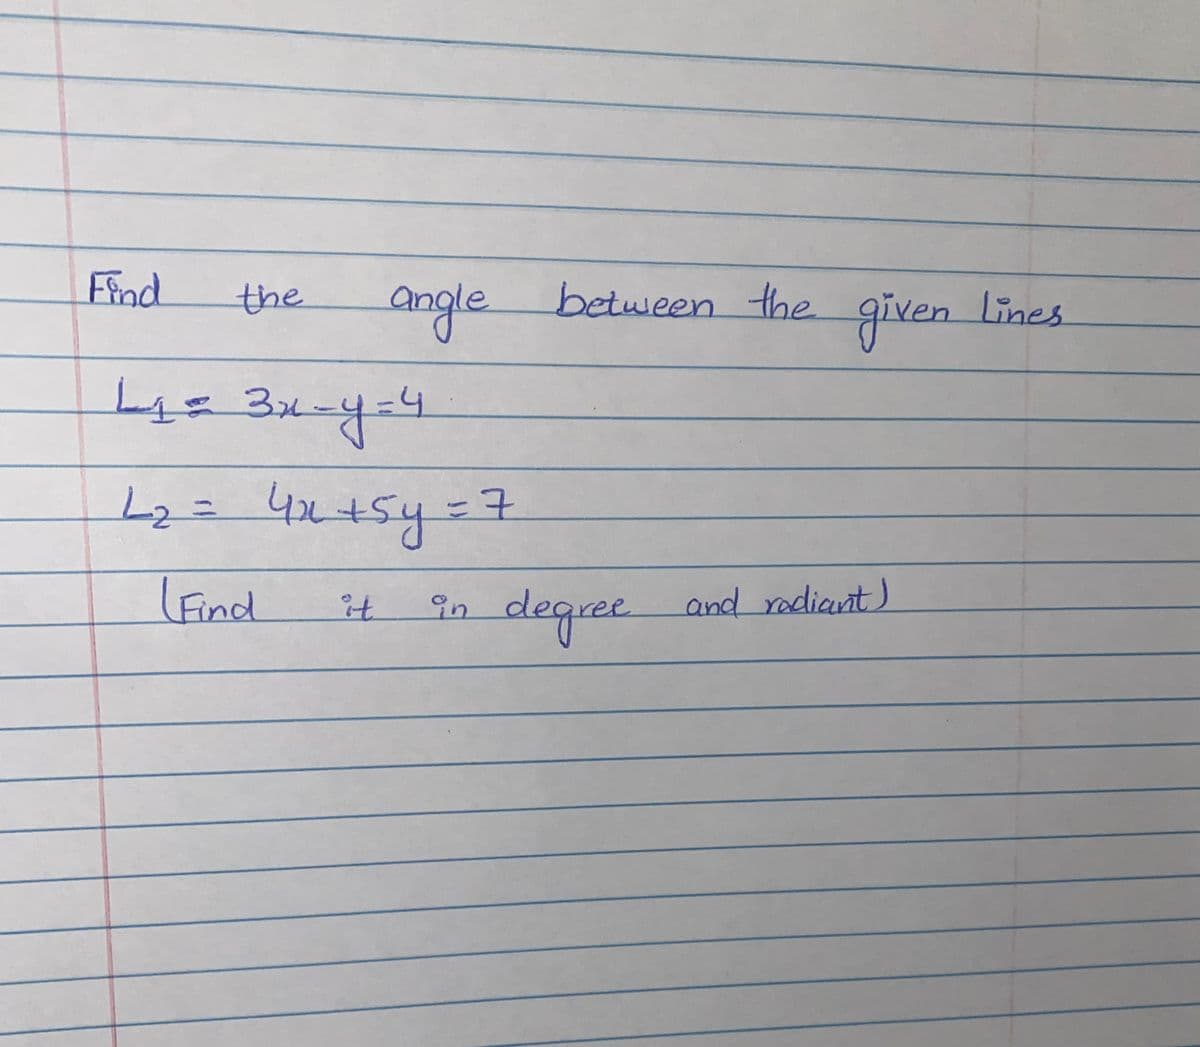 Find the angle between the given lines
L1 = 3x-y=4
L2 = 4x+5y=7
(Find it in degree and radiant)